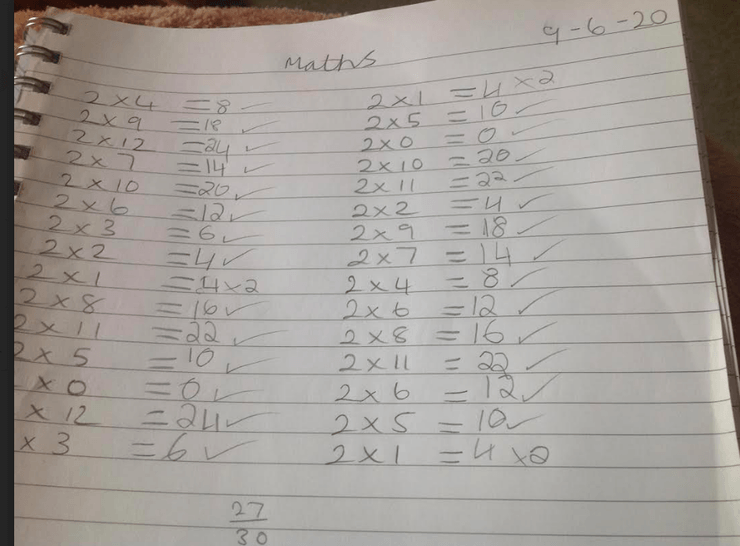 9-6-20
Maths
2×4 =8 ✓
2×9 =18 ✓
2×12 =24 ✓
2×7 =14 ✓
2×10 =20 ✓
2×6 =12 ✓
2×3 =6 ✓
2×2 =4 ✓
2×1 =4×2
2×8 =16 ✓
2×11 =22 ✓
2×5 =10 ✓
×0 =0 ✓
×12 =24 ✓
×3 =6 ✓
2×1 =4×2
2×5 =10 ✓
2×0 =0 ✓
2×10 =20 ✓
2×11 =22 ✓
2×2 =4 ✓
2×9 =18 ✓
2×7 =14 ✓
2×4 =8 ✓
2×6 =12 ✓
2×8 =16 ✓
2×11 =22 ✓
2×6 =12 ✓
2×5 =10 ✓
2×1 =4 ×2
27
30